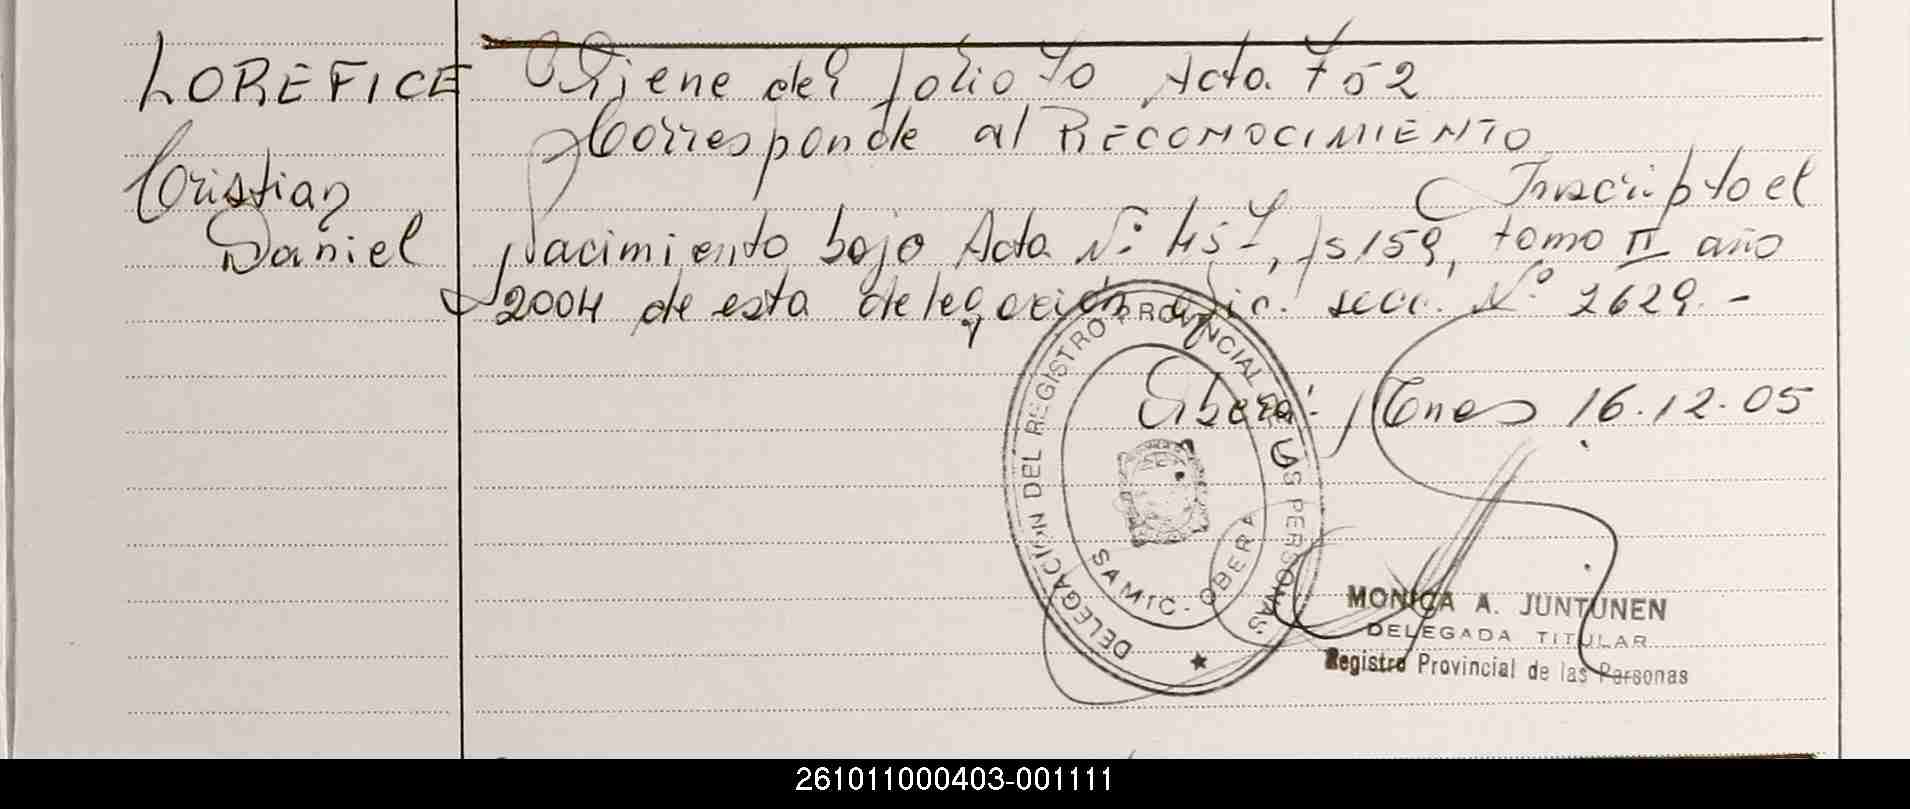 LOREFICE
Cristian
Daniel
Viene del folio 70 Acta 752
Corresponde al RECONOCIMIENTO
Inscripto el
Nacimiento bajo Acta Nº 457, fs 159, tomo II año
2004 de esta delegación Dic. secc. Nº 2629.-
Oberá: Mnes 16.12.05
DELEGACION DEL REGISTRO PROVINCIAL DE LAS PERSONAS
SAMIC - OBERA
MONICA A. JUNTUNEN
DELEGADA TITULAR
Registro Provincial de las Personas
261011000403-001111